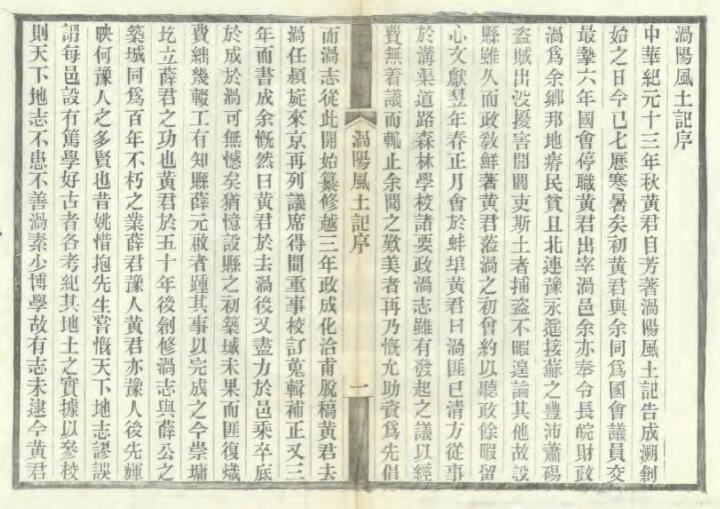 渦陽風土記序
中華紀元十三年秋黃君自芳著渦陽風土記告成溯創
始之日今已七歷寒暑矣初黃君與余同爲國會議員交
最摯六年國會停職黃君出宰渦邑余亦奉令長皖財政
渦爲余鄉那地瘠民貧且北連豫永遝接蘇之豐沛蕭碭
盜賊出沒擾害閭閻吏斯土者捕盜不暇遑論其他故設
縣雖久而政敎鮮著黃君蒞渦之初會約以聽政餘暇留
心文獻翌年春正月會於蚌埠黃君曰渦匪已清方從事
於溝渠道路森林學校諸要政渦志雖有發起之議以經
費無着議而輒止余聞之歎美者再乃慨允助資爲先倡
渦陽風土記序
一
而渦志從此開始纂修越三年政成化洽甫脫稿黃君去
渦任頻旋來京再列議席得間重事校訂蒐輯補正又三
年而書成余慨然曰黃君於去渦後又盡力於邑乘卒底
於成於渦可無憾矣猶憶設縣之初築城未果而匪復熾
費絀幾輟工有知縣薛元啟者踵其事以完成之今崇墉
圪立薛君之功也黃君於五十年後創修渦志與薛公之
築城同爲百年不朽之業薛君豫人黃君亦豫人後先輝
映何豫人之多賢也昔姚惜抱先生嘗慨天下地志謬誤
謂每邑設有篤學好古者各考紀其地土之實據以參校
則天下地志不患不善渦素少博學故有志未逮今黃君